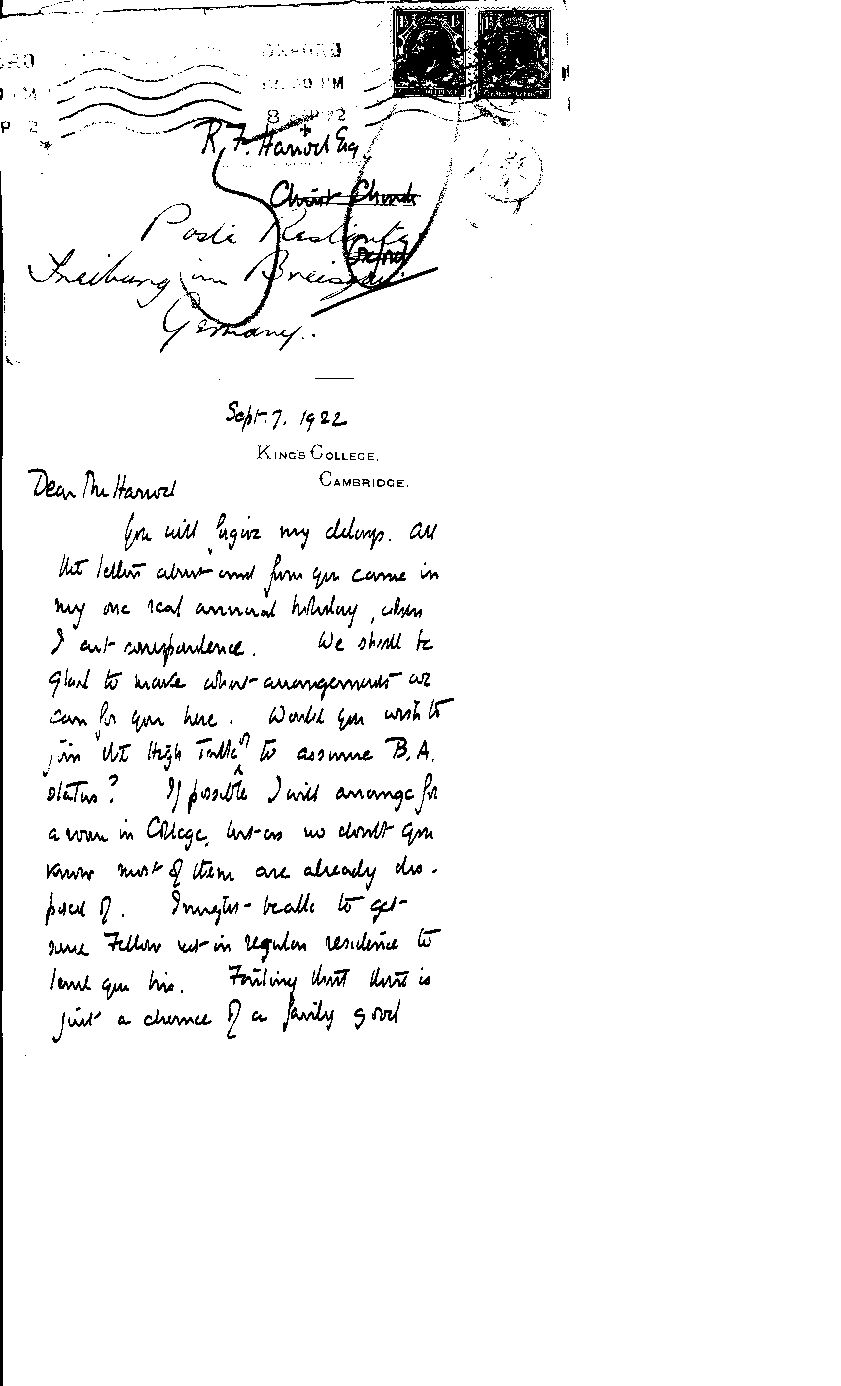 OXFORD
PM
8 SEP 22
R. F. Harrod Esq
Christ Church
Oxford
Poste Restante
Freiburg im Breisgau.
Germany.
Sept. 7. 1922
KING'S COLLEGE,
CAMBRIDGE.
Dear Mr Harrod
You will forgive my delays. All
the letters about and from you came in
my one real annual holiday, when
I cut correspondence. We shall be
glad to make what arrangements we
can for you here. Would you wish to
join the High Table to assume B.A.
status? If possible I will arrange for
a room in College, but as no doubt you
know most of them are already dis-
posed of. I might be able to get
some Fellow not in regular residence to
lend you his. Failing that there is
just a chance of a fairly good